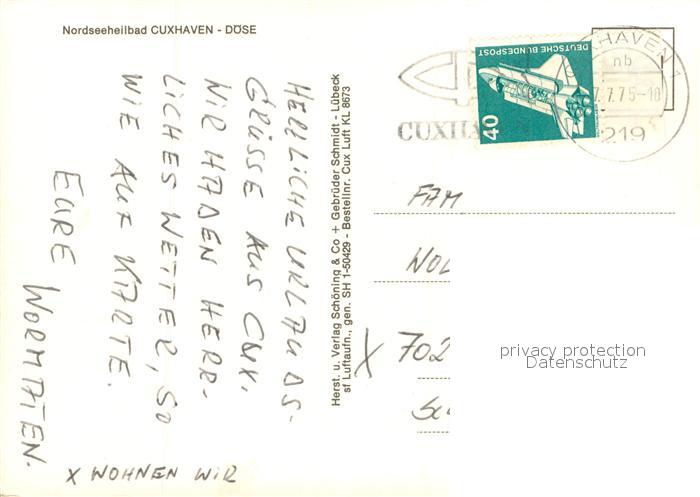 Nordseeheilbad CUXHAVEN - DÖSE
HERRLICHE URLAUBS-
GRÜSSE AUS CUX.
WIR HABEN HERR-
LICHES WETTER, SO
WIE AUF KARTE.
EURE WORMATEN.
X WOHNEN WIR
Herst. u. Verlag Schöning & Co + Gebrüder Schmidt - Lübeck
sf Luftaufn., gen. SH 1-50429 - Bestellnr. Cux Luft KL 8673
DEUTSCHE BUNDESPOST
40
HAVEN 1
nb
7.7.75-18
219
CUXH
FAM
X 702
privacy protection
Datenschutz